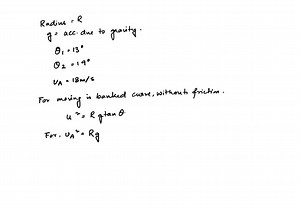 Radius = R
g = acc. due to gravity.
θ₁ = 13°
θ₂ = 19°
vA = 18 m/s
For moving in banked curve, without friction.
u² = R g tan θ
For. vA² = Rg